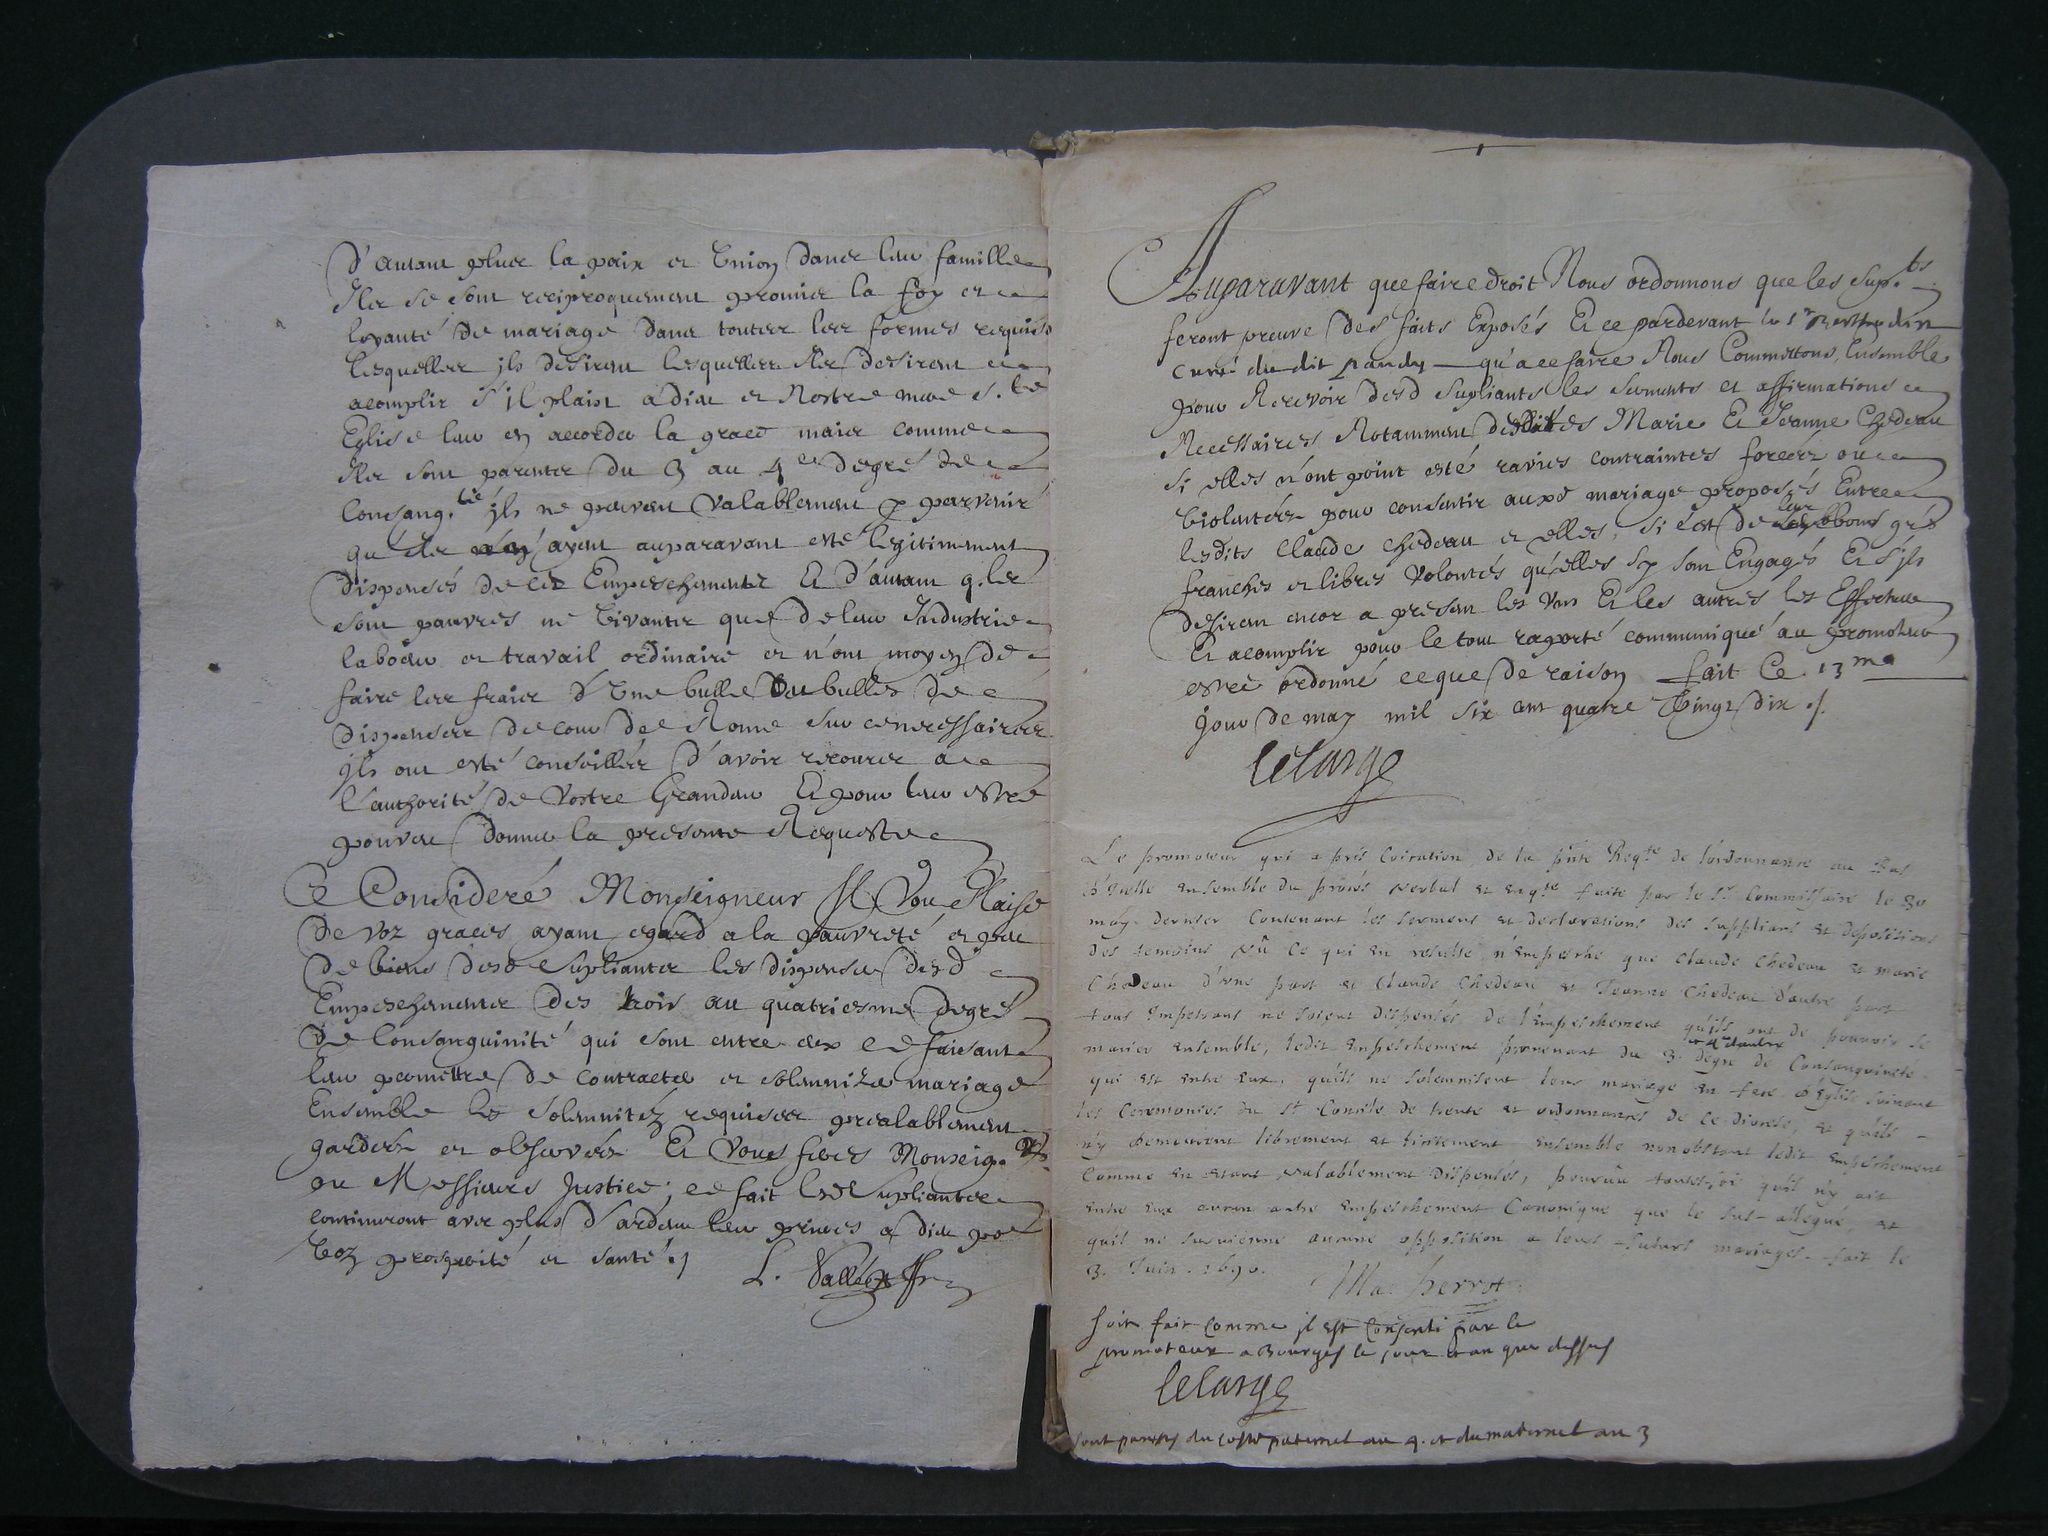 D'autant plus la paix et Union dans leur famille
Ils se sont reciproquement promis la foy et
loyauté de mariage dans toutes les formes requises
lesquelles ils desirent lesquelles Ils desirent
acomplir s'il plaist a dieu et Nostre mere s.te
Eglise leur en accorder la grace mais comme
Ils sont parents du 3 au 4e degré de
Consang.té ils ne peuvent Valablement y parvenir
qu'ils n'ayent auparavant esté legitimement
dispensés de ces Empeschements Et d'autant q. les
sont pauvres ne Vivants que de leur Industrie
labeur et travail ordinaire et n'ont moyen de
faire les frais d'Une bulle ou bulles de
dispenses de cour de Rome sur ce necessaires
ils ont esté conseillés d'avoir recours a
l'authorité de Vostre Grandeur Et pour leur estre
pourveu donner la presente Requeste
Ce Consideré Monseigneur Il Vous Plaise
de voz graces ayant egard a la pauvreté et peu
de biens desd suplients les dispenser desd
Empeschements des trois au quatriesme degré
de Consanguinité qui sont entre eux ce faisant
leur permettre de contracter et solemnizer mariage
Ensemble les solemnitéz requises prealablement
gardées et observées Et Vous ferés Monseig.r
ou Messieurs Justice; ce fait lesd supliants
continuront avec plus d'ardeur leur prieres a dieu po.r
Voz prosperité et santé ./
L. Vallée
Auparavant que faire droit Nous ordonnons que les Sup.ts
feront preuve des faits Exposés Et ce pardevant le Sr
curé du dit pandy qu'a ce faire Nous Commettons, Ensemble
pour Recevoir desd Supliants les serments et affirmations
Necessaires Notamment desdites Marie Et Jeanne Chedeau
Si elles n'ont point esté ravies contraintes forcées ou
Violentées pour consentir auxd mariage proposés Entre
lesdits Claude Chedeau et elles, si c'est de leur bons gré
franches et libres Volontés qu'elles s'y sont Engagés Et s'ils
desirent encor a present les Uns Et les autres les Effectuer
Et acomplir pour le tout raporté communiqué au promoteur
estre ordonné ce que de raison fait Ce 13me
jour de may mil six cent quatre Vingt dix ./.
lelarge
Le promoteur qui a pris Coication de la pnte Reqte de l'ordonnance au bas
d'icelle ensemble du procés verbal et enqte faite par le Sr Commissaire le 30
may dernier Contenant les serments et declarations des suppliants et depositions
des temoins vû ce qui en resulte, n'empesche que Claude Chedeau et marie
Chedeau d'une part et Claude Chedeau et Jeanne Chedeau d'autre part
tous Impetrans ne soient dispensés de l'empeschement qu'ils ont de pouvoir se
marier ensemble, ledit empeschement provenant du 3. degré de Consanguinité
et 4e d'autre
qui est entre eux, qu'ils ne solemnisent leur mariage en face d'Eglise suivant
les Ceremonies du St Concile de trente et ordonnances de ce diocese, et qu'ils
n'y demeurent librement et licitement ensemble nonobstant ledit empeschement
Comme en estant valablement dispensés, pourvû toutesfois qu'il n'y ait
entre eux aucun autre empeschement Canonique que le sus-allegué, et
qu'il ne survienne aucune opposition a leurs futurs mariages. fait le
3. Juin 1690.
Ma. herrot
Soit fait comme il est consenti par le
promoteur a Bourges le jour et an que dessus
lelarge
sont parents du costé paternel au 4. et du maternel au 3